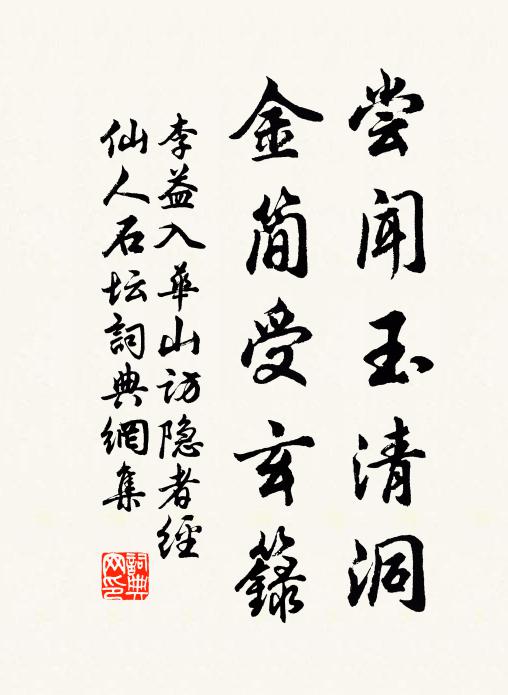 尝闻玉清洞
金简受玄籙
李益入華山访隐者經
仙人石坛詞典網集
詞典網印